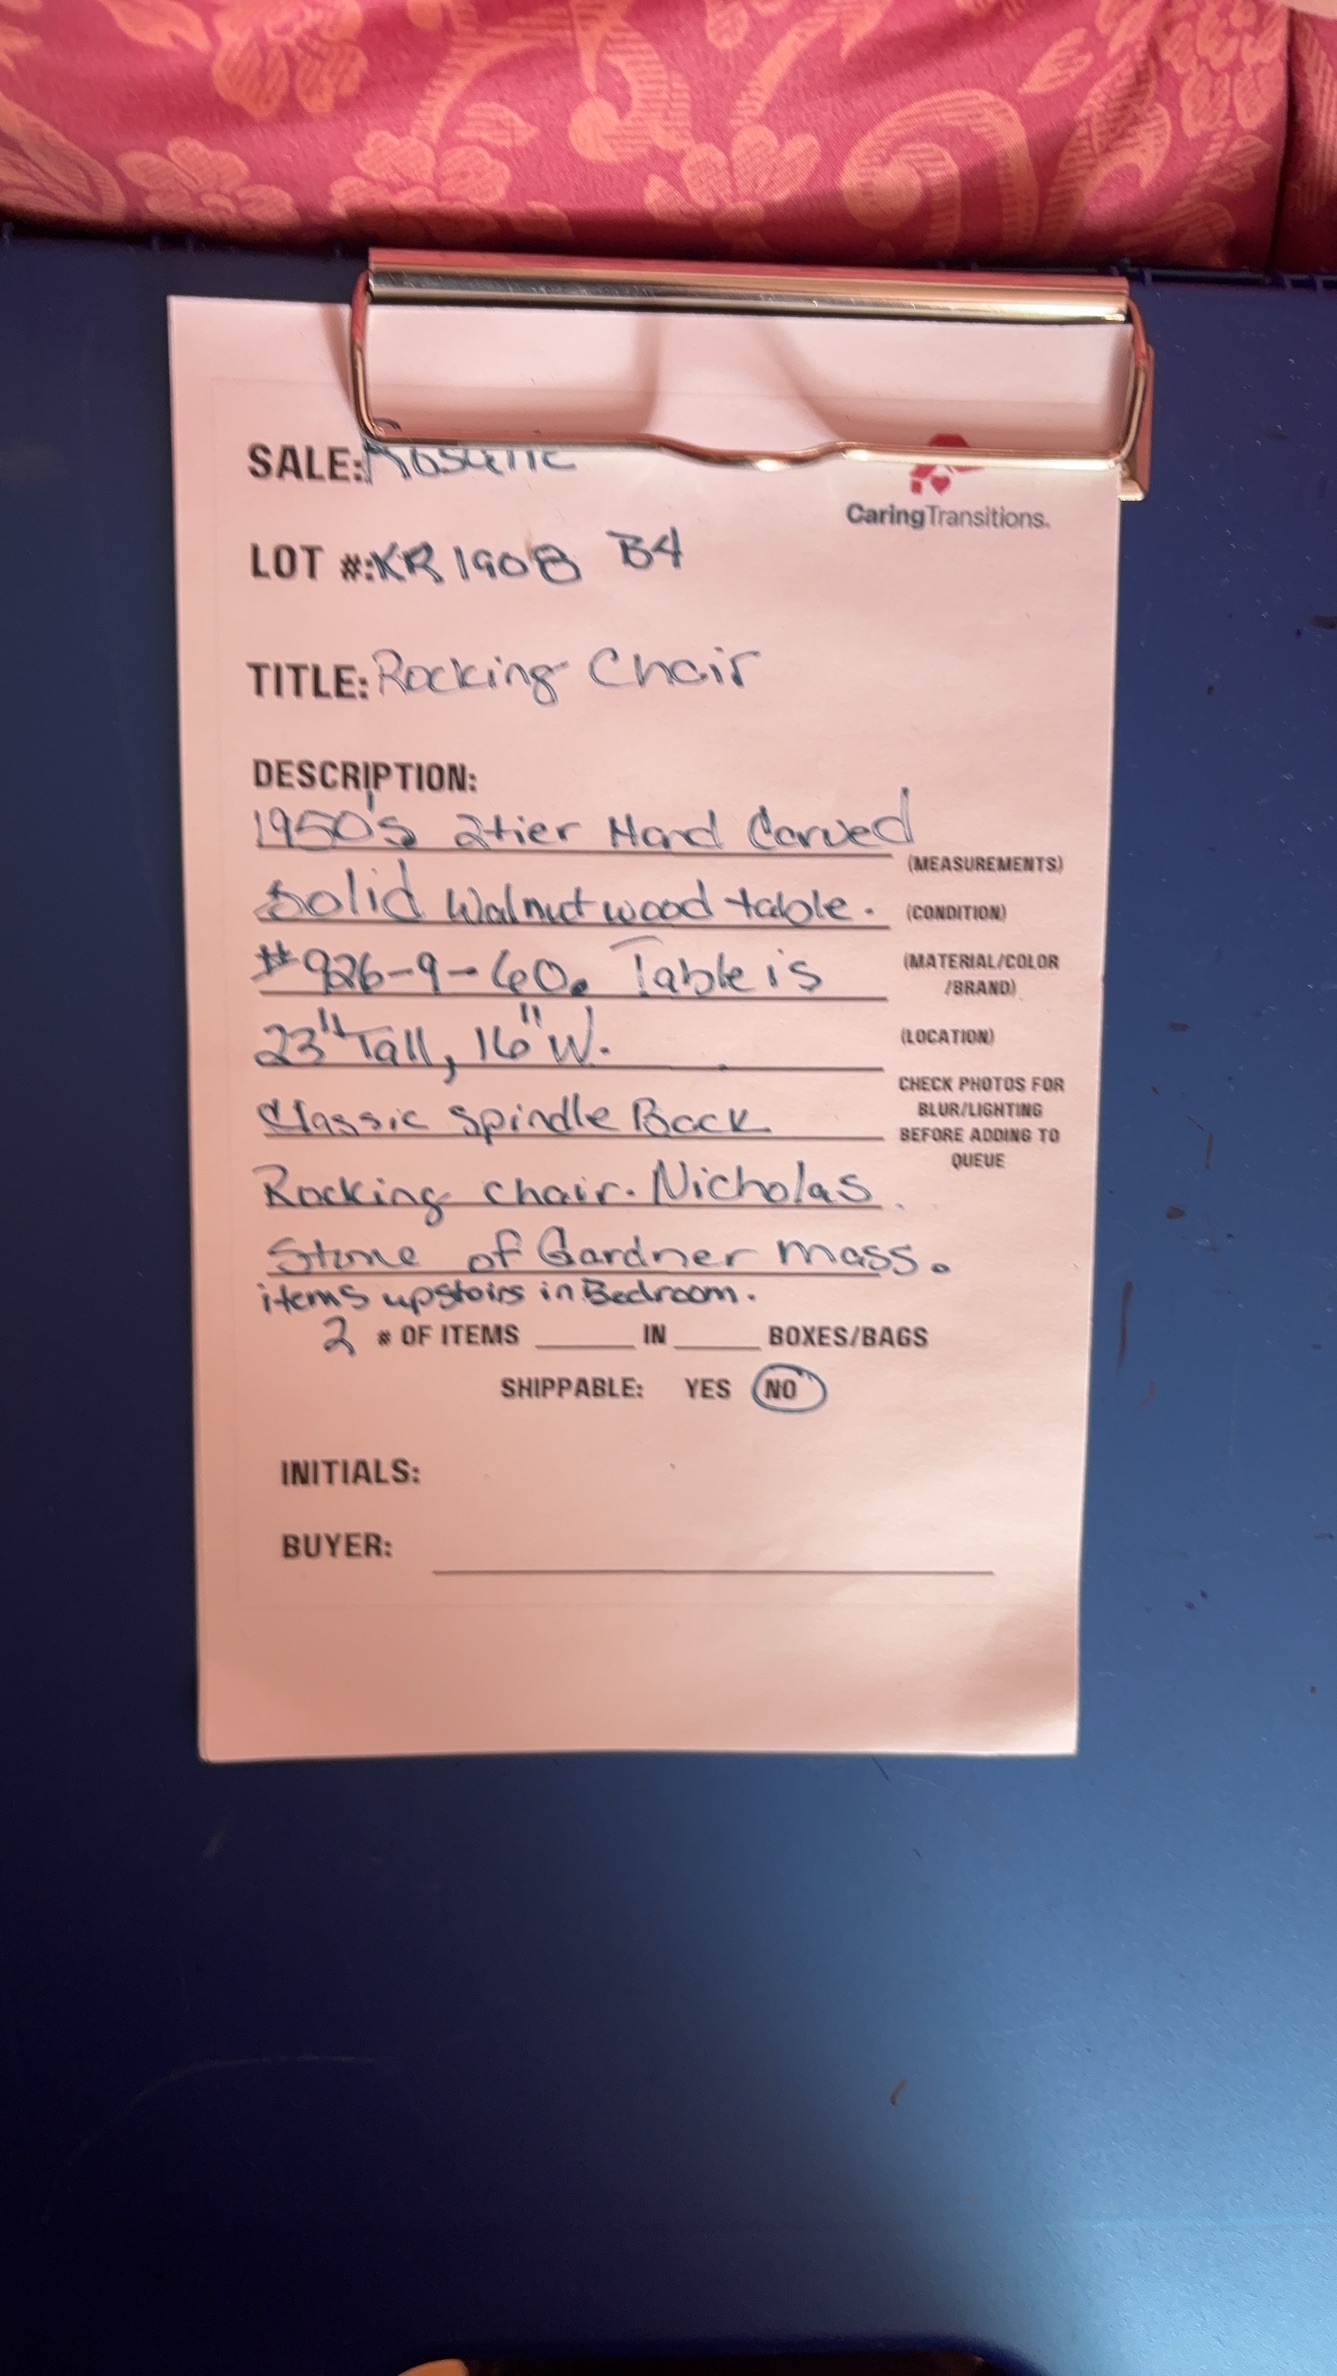 SALE:
CaringTransitions.
LOT #: KR 1908 B4
TITLE: Rocking Chair
DESCRIPTION:
1950's 2tier Hand Carved
(MEASUREMENTS)
Solid Walnut wood table.
(CONDITION)
#926-9-60. Table is
(MATERIAL/COLOR
/BRAND)
23" Tall, 16" W.
(LOCATION)
CHECK PHOTOS FOR
BLUR/LIGHTING
BEFORE ADDING TO
QUEUE
Classic Spindle Back
Rocking chair. Nicholas
Stone of Gardner mass.
items upstairs in Bedroom.
2 # OF ITEMS ______ IN ______ BOXES/BAGS
SHIPPABLE: YES NO
INITIALS:
BUYER: